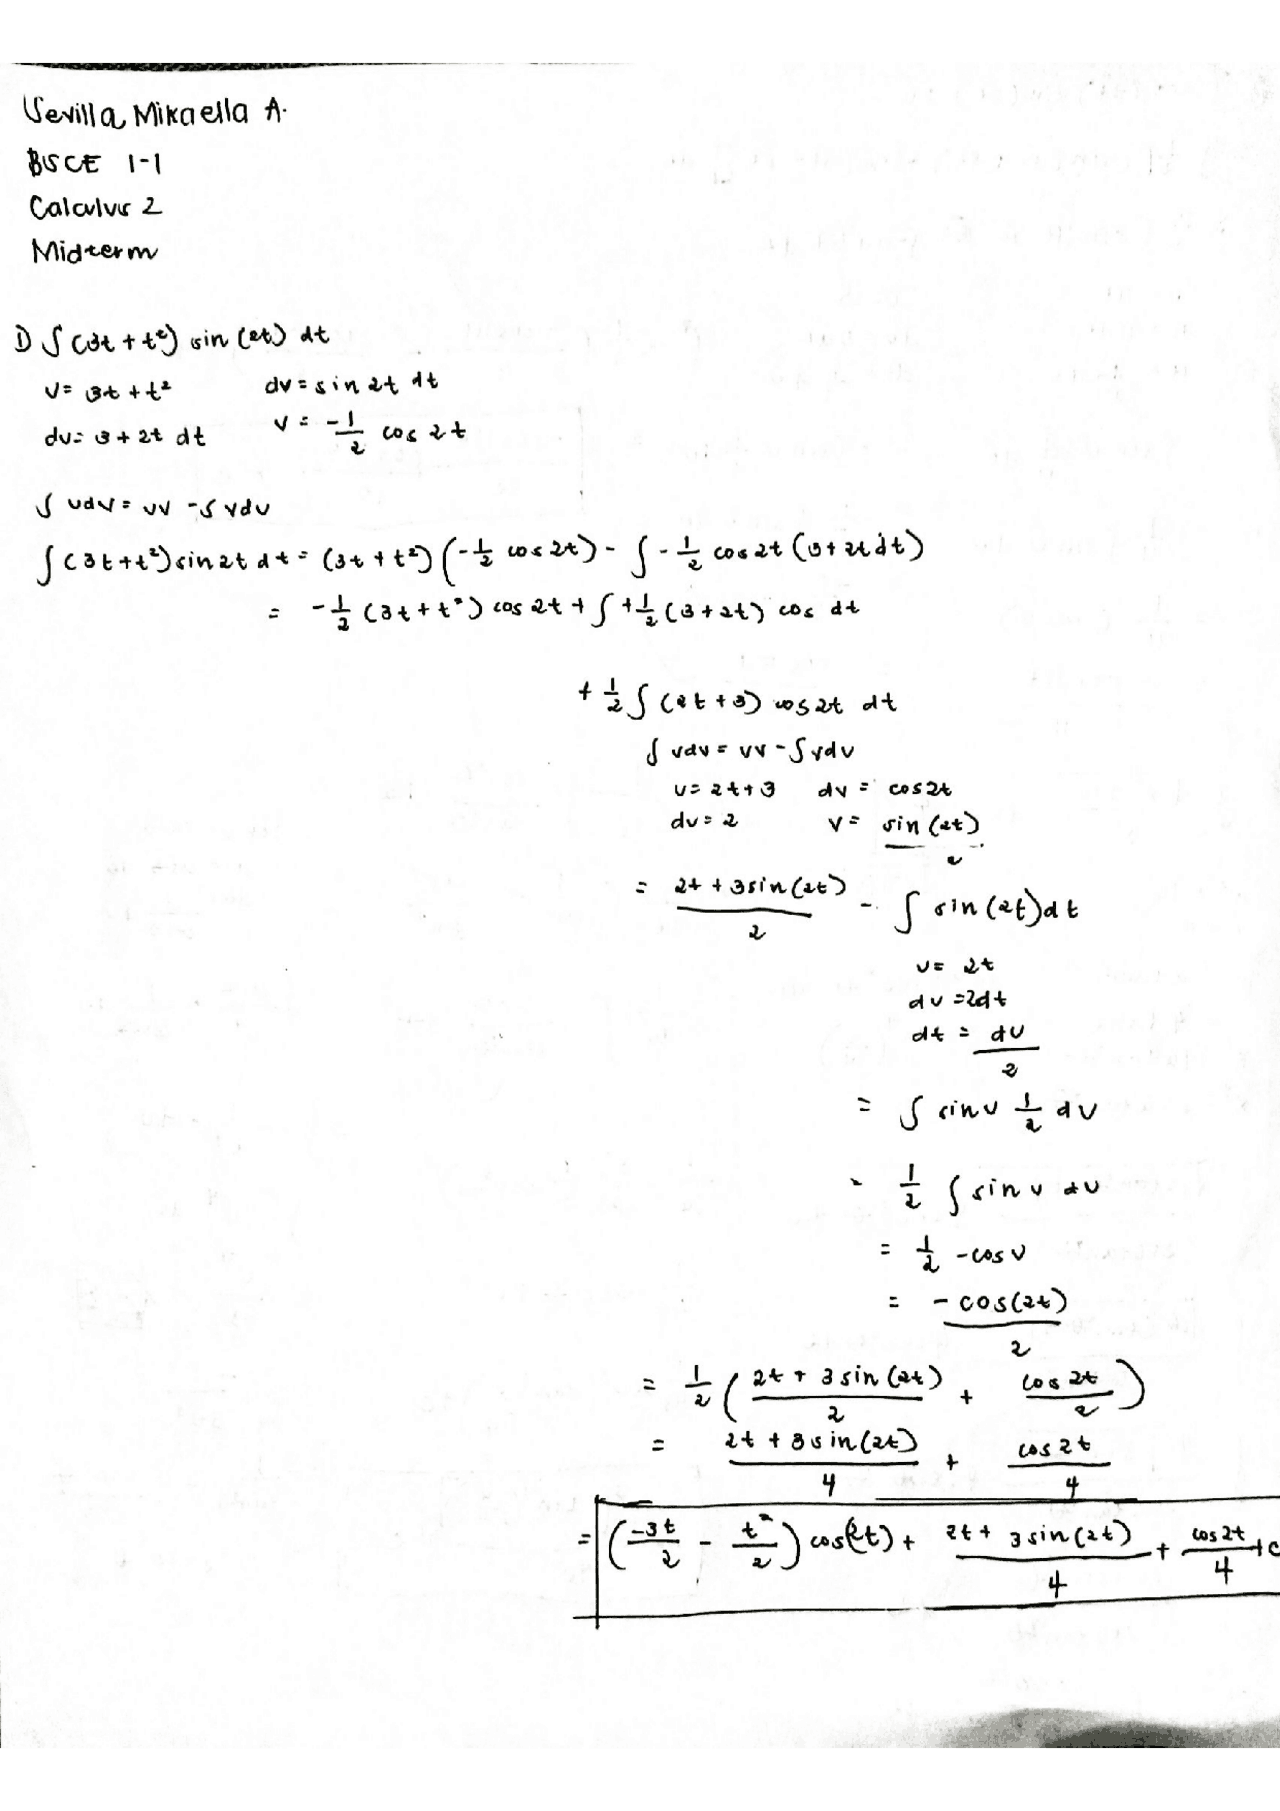 Sevilla Mikaella A.
BSCE 1-1
Calculus 2
Midterm
1) ∫ (3t + t²) sin (2t) dt
u = 3t + t² dv = sin 2t dt
du = 3 + 2t dt v = -1/2 cos 2t
∫ udv = uv - ∫ vdu
∫ (3t + t²) sin 2t dt = (3t + t²) (-1/2 cos 2t) - ∫ -1/2 cos 2t (3 + 2t dt)
= -1/2 (3t + t²) cos 2t + ∫ +1/2 (3 + 2t) cos dt
+ 1/2 ∫ (2t + 3) cos 2t dt
∫ udv = uv - ∫ vdu
u = 2t + 3 dv = cos 2t
du = 2 v = sin (2t)/2
= 2t + 3 sin (2t)/2 - ∫ sin (2t) dt
u = 2t
du = 2dt
dt = du/2
= ∫ sin u 1/2 du
= 1/2 ∫ sin u du
= 1/2 - cos u
= - cos(2t)/2
= 1/2 ( 2t + 3 sin (2t)/2 + cos 2t/2 )
= 2t + 3 sin (2t)/4 + cos 2t/4
= ( -3t/2 - t²/2 ) cos(2t) + 2t + 3 sin (2t)/4 + cos 2t/4 + c